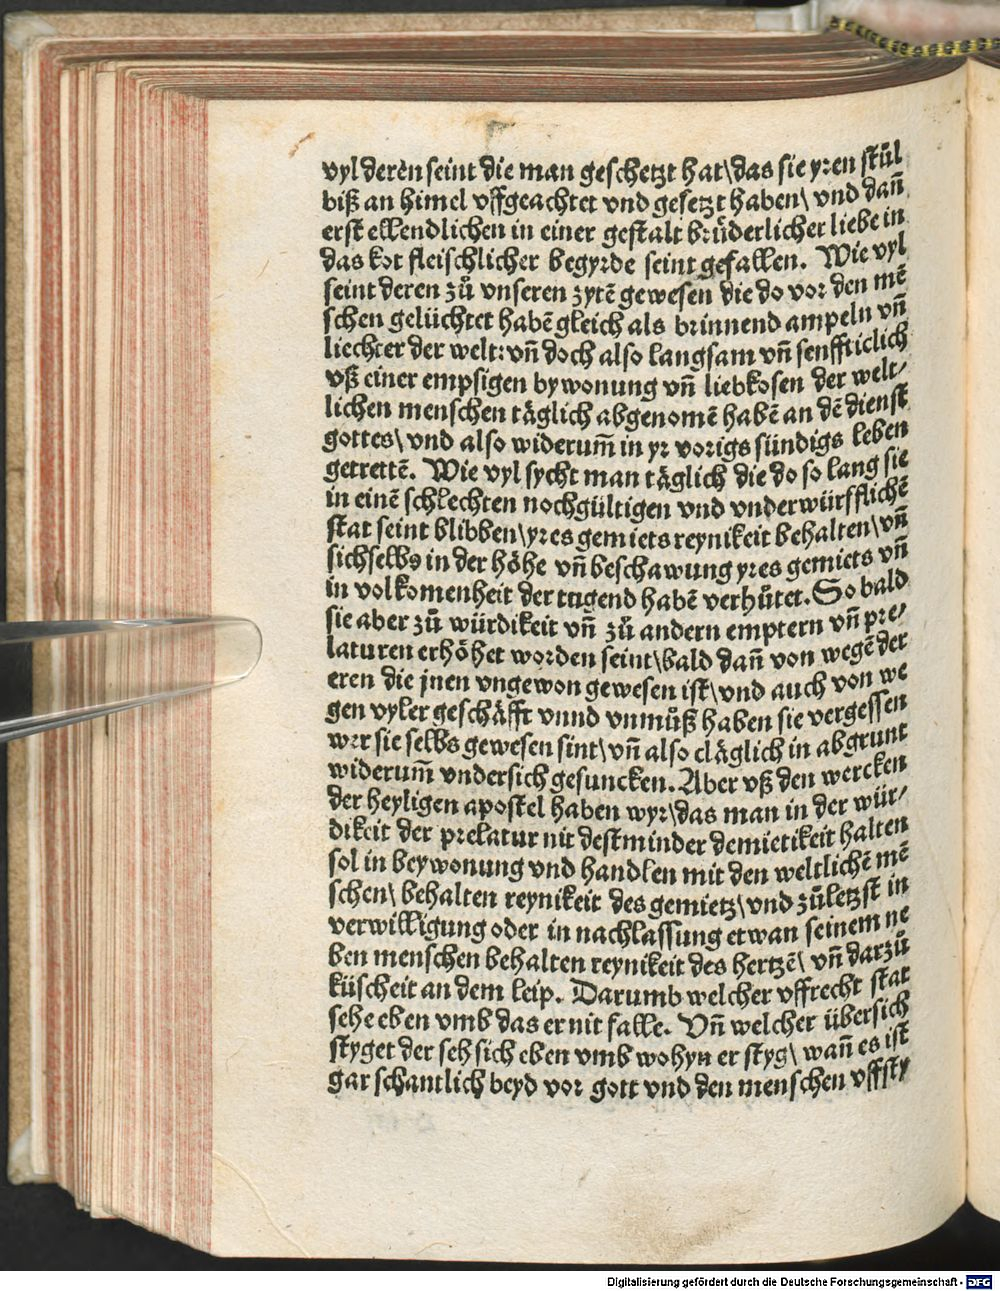 vyl deren seint die man geschetzt hat\das sie yren stůl
biß an himel vffgeachtet vnd gesetzt haben\ vnd dañ
erst ellendlichen in einer gestalt brüderlicher liebe in
das kot fleischlicher begyrde seint gefallen. Wie vyl
seint deren zů vnseren zytē gewesen die do vor den mē
schen gelüchtet habē gleich als brinnend ampeln vñ
liechter der welt: vñ doch also langsam vñ senffticlich
vß einer empsigen bywonung vñ liebkosen der welt⸗
lichen menschen täglich abgenomē habē an dē dienst
gottes\ vnd also widerum̄ in yr vorigs sündigs leben
getrettē. Wie vyl sycht man täglich die do so lang sie
in einē schlechten nochgültigen vnd vnderwürfflichē
stat seint blibben\yres gemiets reynikeit behalten\ vñ
sichselbs in der höhe vñ beschawung yres gemiets vñ
in volkomenheit der tugend habē verhůtet. So bald
sie aber zů würdikeit vñ zů andern emptern vñ pre⸗
laturen erhöhet worden seint\bald dañ von wegē der
eren die jnen vngewon gewesen ist\ vnd auch von we
gen vyler geschäfft vnnd vnmůß haben sie vergessen
wer sie selbs gewesen sint\ vñ also cläglich in abgrunt
widerum̄ vndersich gesuncken. Aber vß den wercken
der heyligen apostel haben wyr\das man in der wür⸗
dikeit der prelatur nit destminder demietikeit halten
sol in beywonung vnd handlen mit den weltlichē mē
schen\ behalten reynikeit des gemietz\ vnd zůletzst in
verwilligung oder in nachlassung etwan seinem ne
ben menschen behalten reynikeit des hertzē\ vñ darzů
küscheit an dem leip. Darumb welcher vffrecht stat
sehe eben vmb das er nit falle. Vñ welcher übersich
styget der seh sich eben vmb wohyn er styg\ wañ es ist
gar schantlich beyd vor gott vnd den menschen vffsty
Digitalisierung gefördert durch die Deutsche Forschungsgemeinschaft - DFG